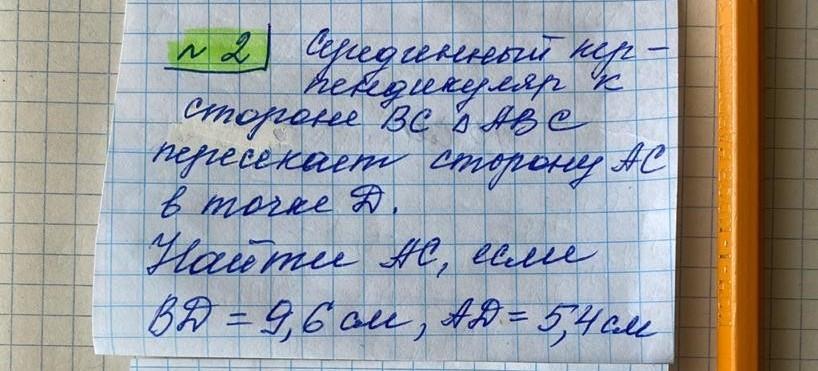 № 2 Серединный пер-
пендикуляр к
стороне BC △ ABC
пересекает сторону AC
в точке D.
Найти AC, если
BD = 9,6 см, AD = 5,4 см